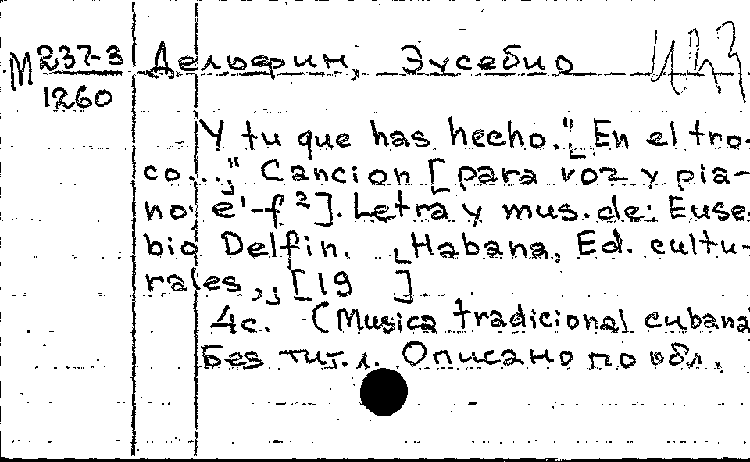 М 237-3 Дельфин, Эусебио
1260
Y tu que has hecho. "En el tro-
co..." Cancion [para voz y pia-
no e'-f²]. Letra y mus. de: Euse-
bio Delfin. Habana, Ed. cultu-
rales, [19 ]
4с. (Musica tradicional cubana
Без тит.л. Описано по обл.